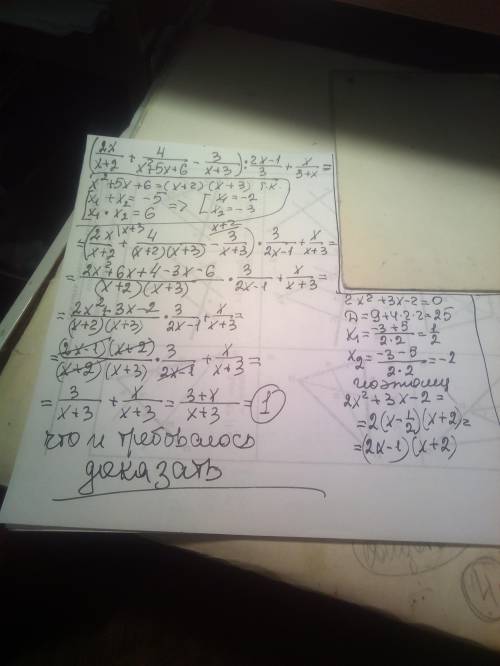 (2x/(x+2) + 4/(x²+5x+6) − 3/(x+3)) : (2x−1)/3 + x/(3+x) =
x²+5x+6=(x+2)(x+3) т.к.
x₁+x₂=−5
x₁·x₂=6 => [x₁=−2
x₂=−3
=(2x/(x+2) |x+3 + 4/((x+2)(x+3)) − 3/(x+3) x+2) · 3/(2x−1) + x/(x+3) =
= (2x²+6x+4−3x−6)/((x+2)(x+3)) · 3/(2x−1) + x/(x+3) =
= (2x²+3x−2)/((x+2)(x+3)) · 3/(2x−1) + x/(x+3) =
= (2x−1)(x+2)/((x+2)(x+3)) · 3/(2x−1) + x/(x+3) =
= 3/(x+3) + x/(x+3) = (3+x)/(x+3) = 1
что и требовалось
доказать
2x²+3x−2=0
D=9+4·2·2=25
x₁=(−3+5)/(2·2)=1/2
x₂=(−3−5)/(2·2)=−2
поэтому
2x²+3x−2=
=2(x−1/2)(x+2)=
=(2x−1)(x+2)